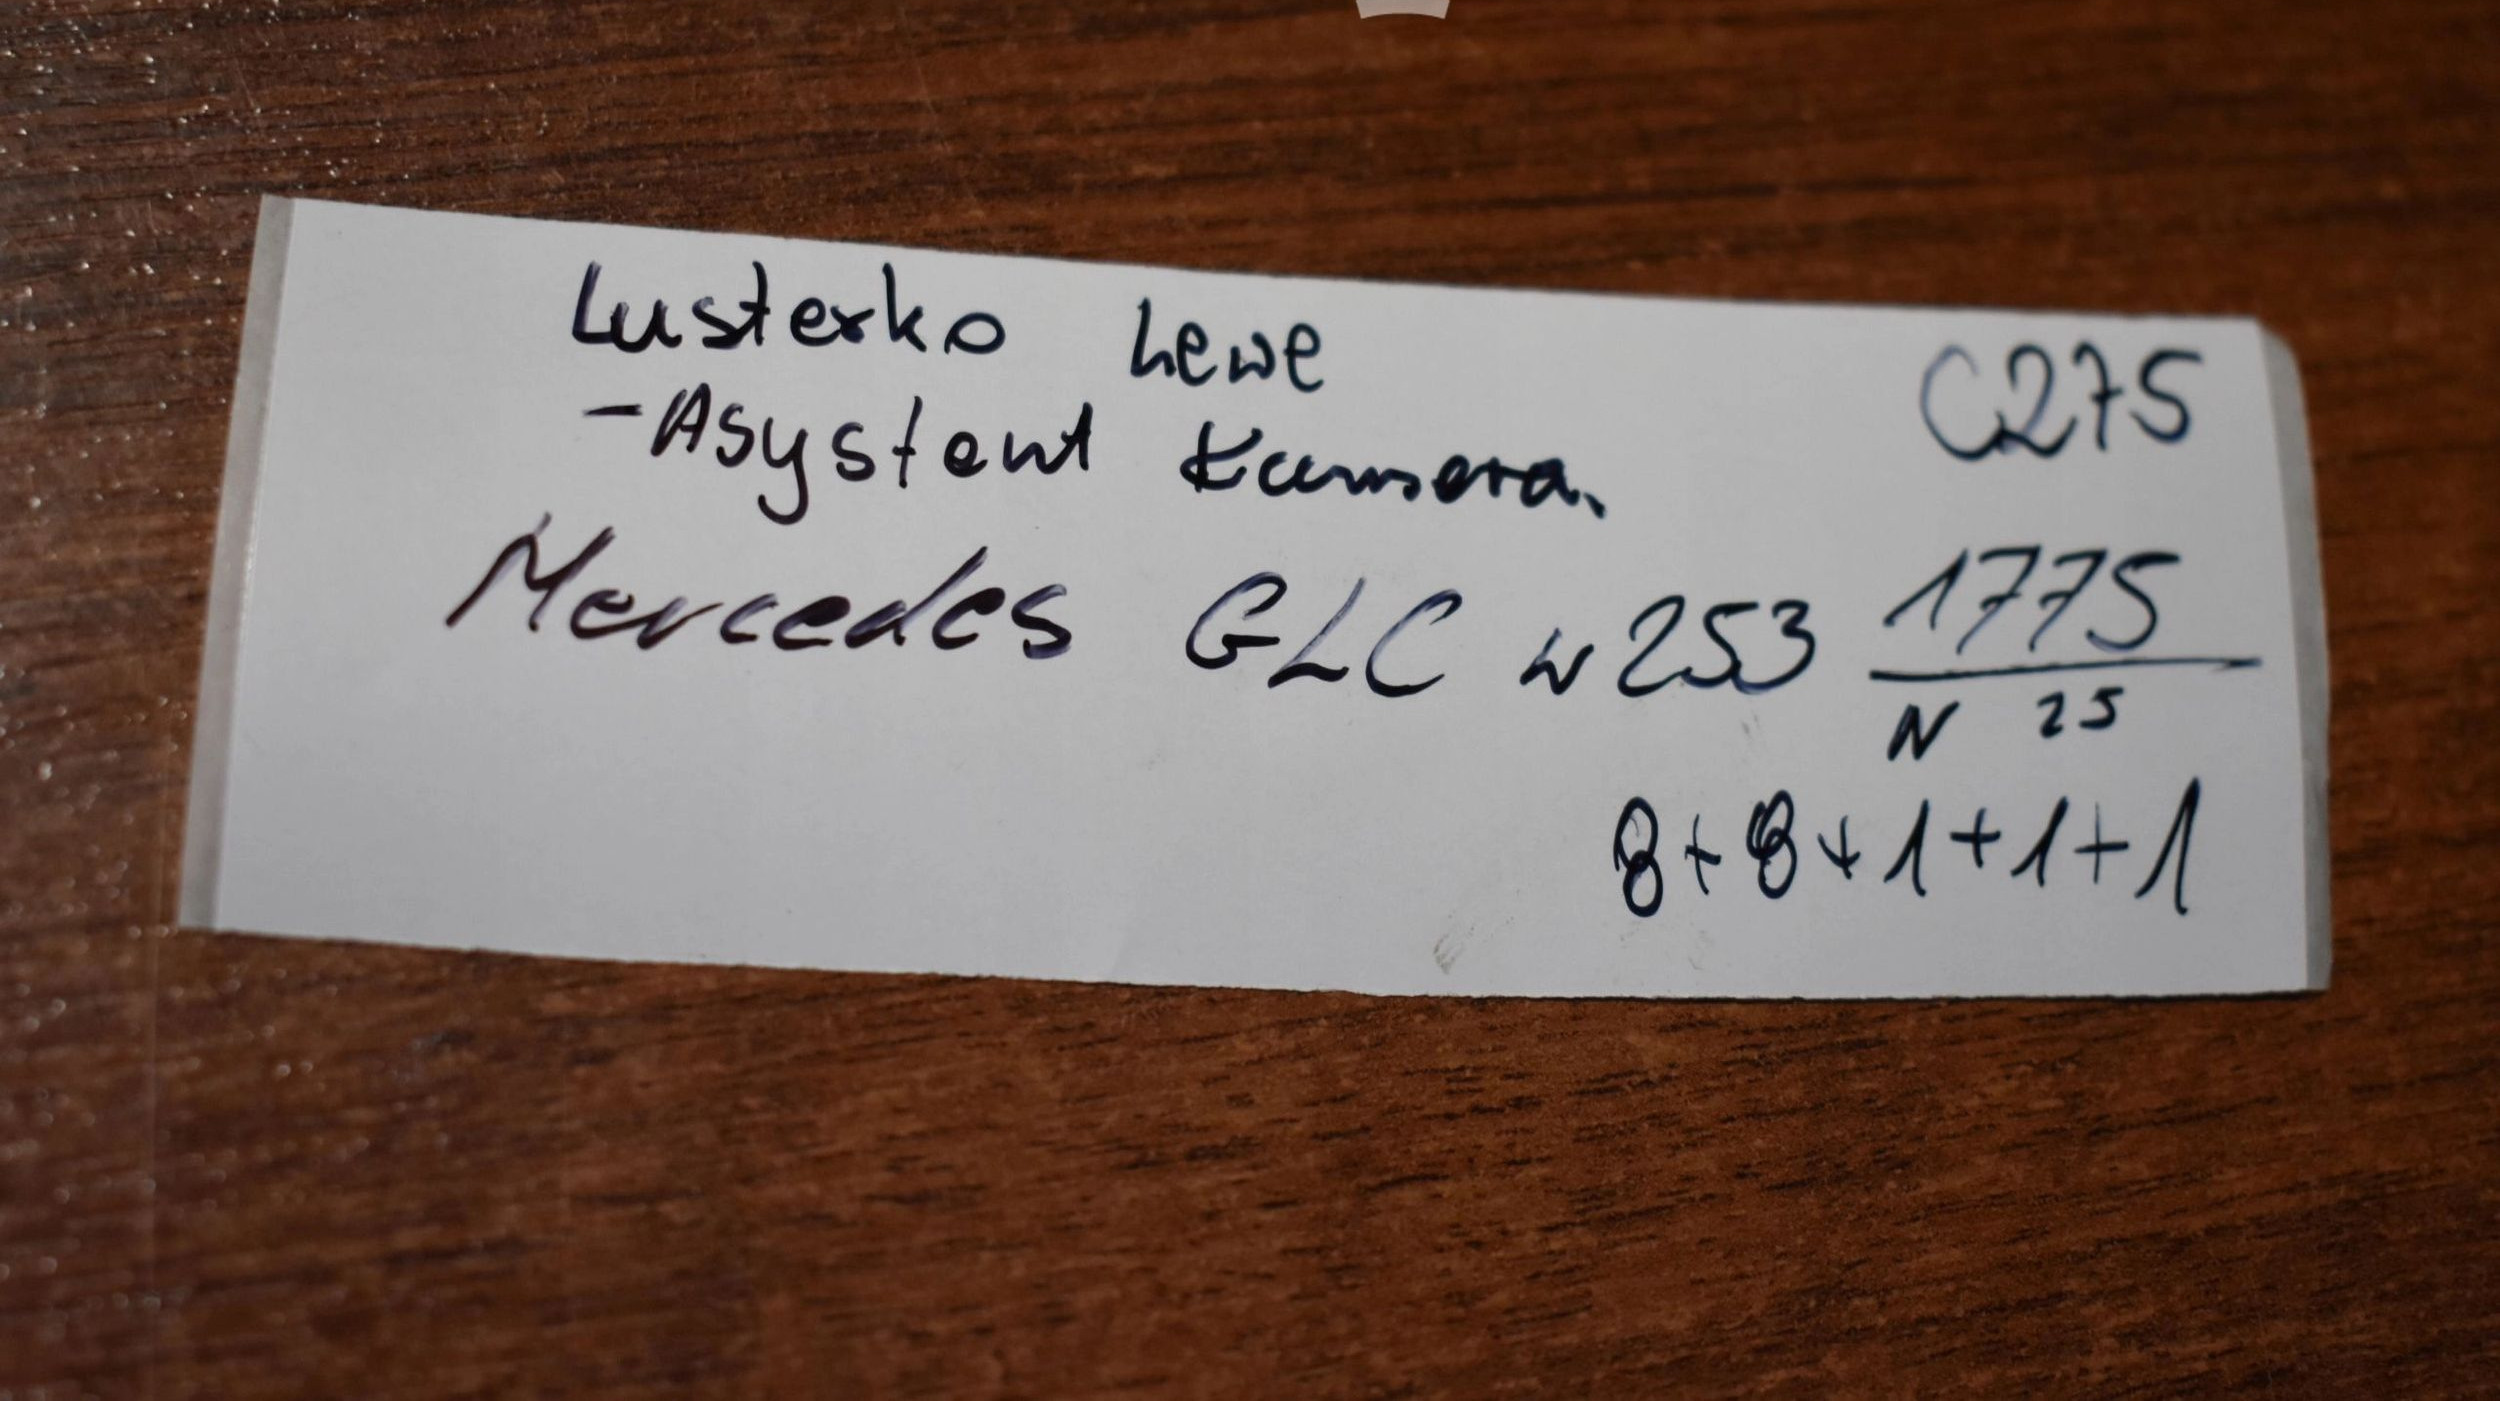 Lusterko Lewe
C275
-Asystent Kamera.
Mercedes GLC w253
1775
N 25
8+8+1+1+1